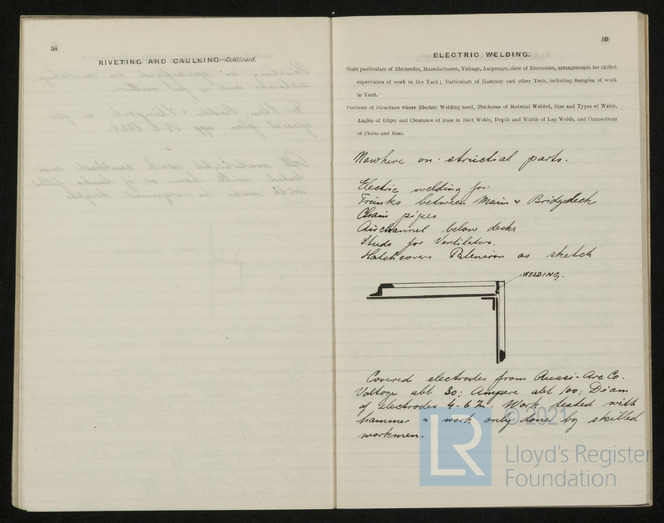 58
RIVETING AND CAULKING—Continued.
59
ELECTRIC WELDING.
State particulars of Electrodes, Manufacturer, Voltage, Amperage, class of Electrodes, arrangements for skilled
supervision of work in the Yard; Particulars of Hammer and other Tests, including Samples of work
in Yard.
Portions of Structure where Electric Welding used, Thickness of Material Welded, Size and Types of Welds,
Angles of Edges and Clearance of Bars in Butt Welds, Depth and Width of Lap Welds, and Connections
of Plates and Bars.
Nowhere on structial parts.
Electric welding for:
Trunks between Main & Bridgedeck
Chain pipes
Airchannel below decks
Studs for Ventilators.
Hatchcovers as sketch
WELDING.
Covered electrodes from Quasi-Arc Co.
Voltage abt 30; Ampere abt 100; Diam
of electrodes 4-6 Work tested with
hammer & work only done by skilled
workmen.
LR
© 2021
Lloyd's Register
Foundation